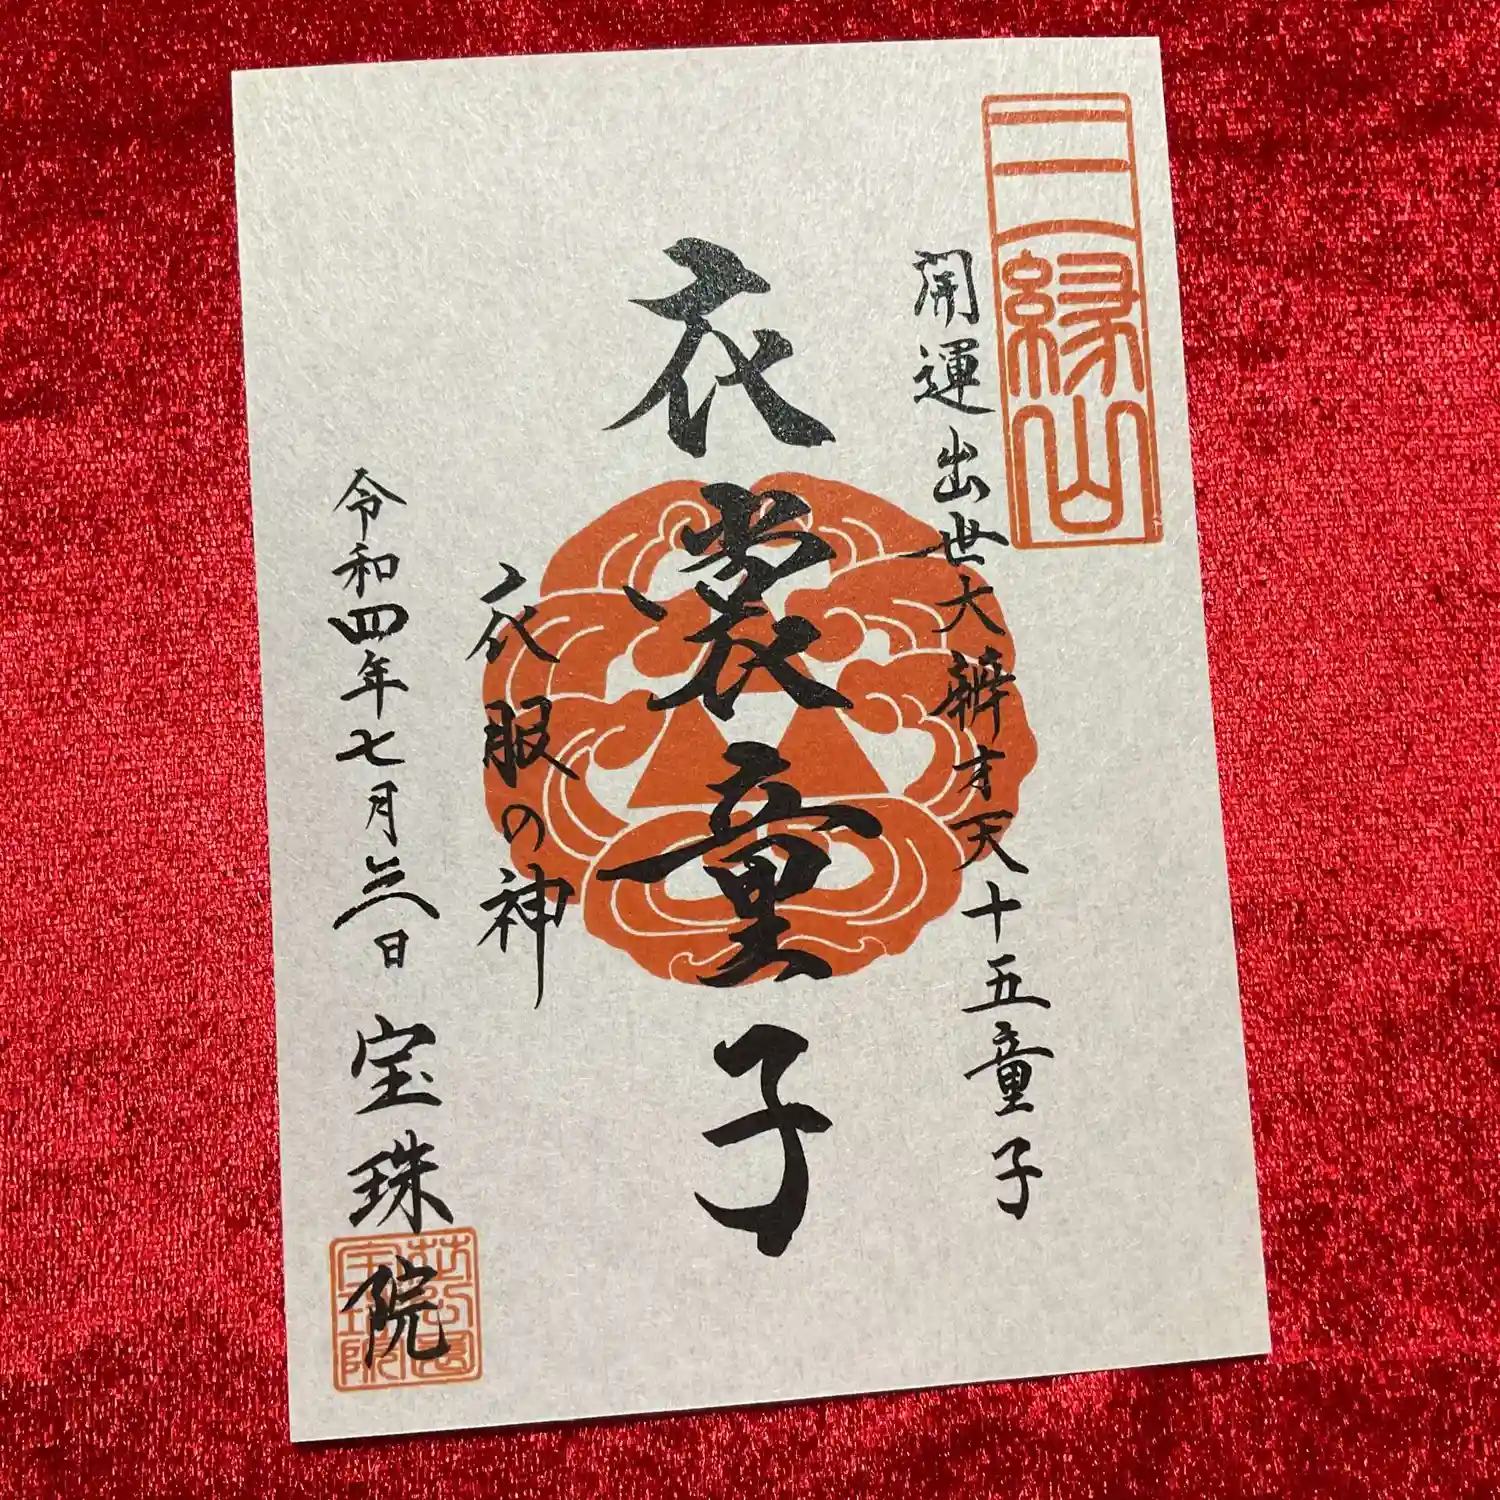 三縁山
開運出世大辨才天十五童子
衣裳童子
衣服の神
令和四年七月三日 宝珠院